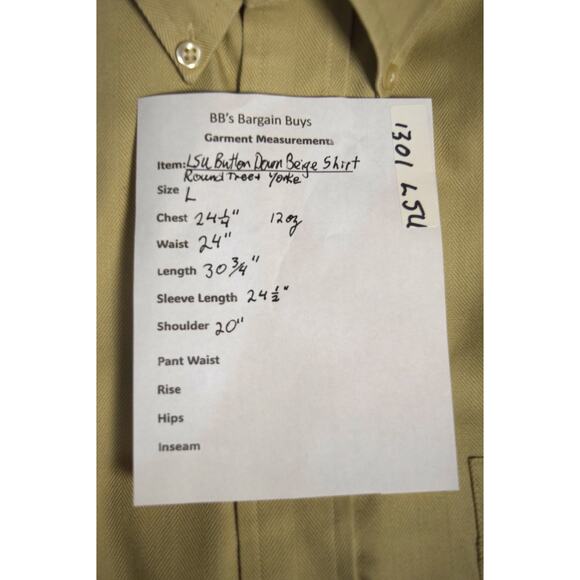 BB's Bargain Buys
Garment Measurements
Item: LSU Button Down Beige Shirt
Roundtree & Yorke
Size L
Chest 24 1/4" 12 oz
Waist 24"
Length 30 3/4"
Sleeve Length 24 1/2"
Shoulder 20"
Pant Waist
Rise
Hips
Inseam
1301 LSU